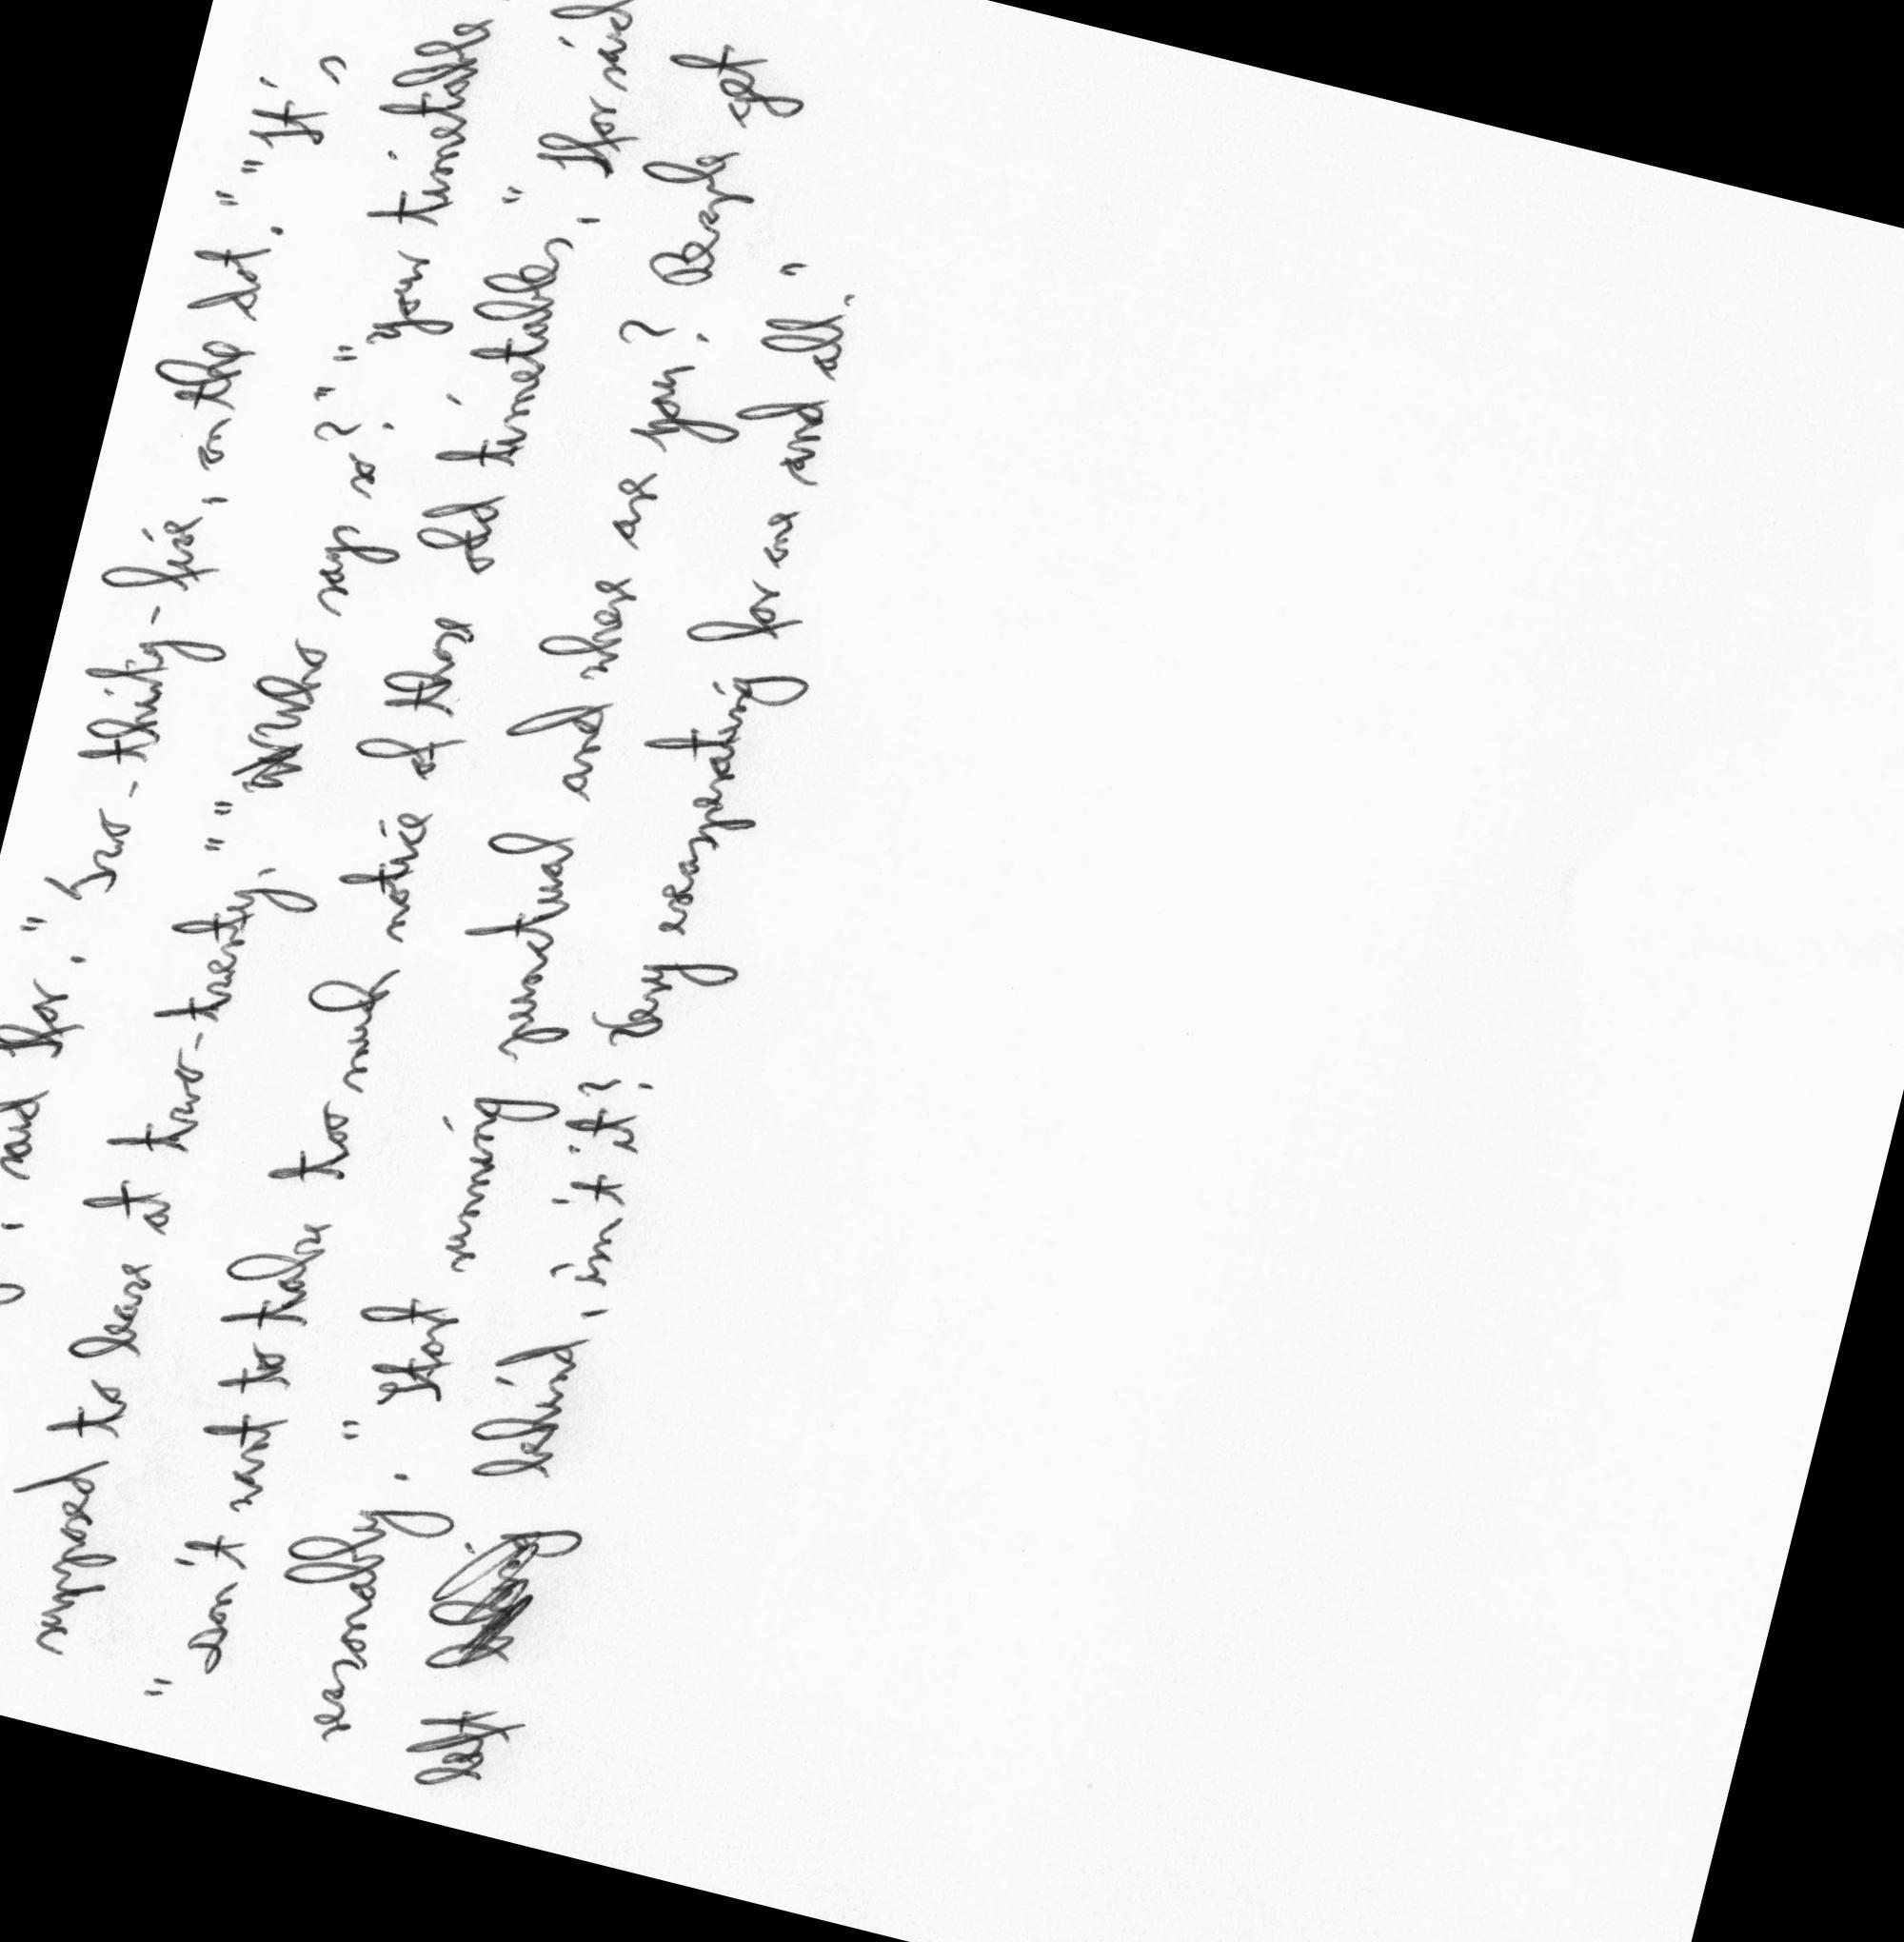 , said Ifor. " Two-thirty-five, on the dot." "It's
supposed to leave at two-twenty." "Who say so?" "your timetable
" don't want to take too much notice of those old timetables," Ifor said
reasonably. " Stop running punctual and where are you? People get
left behind, isn't it? Very exasperating for one and all."